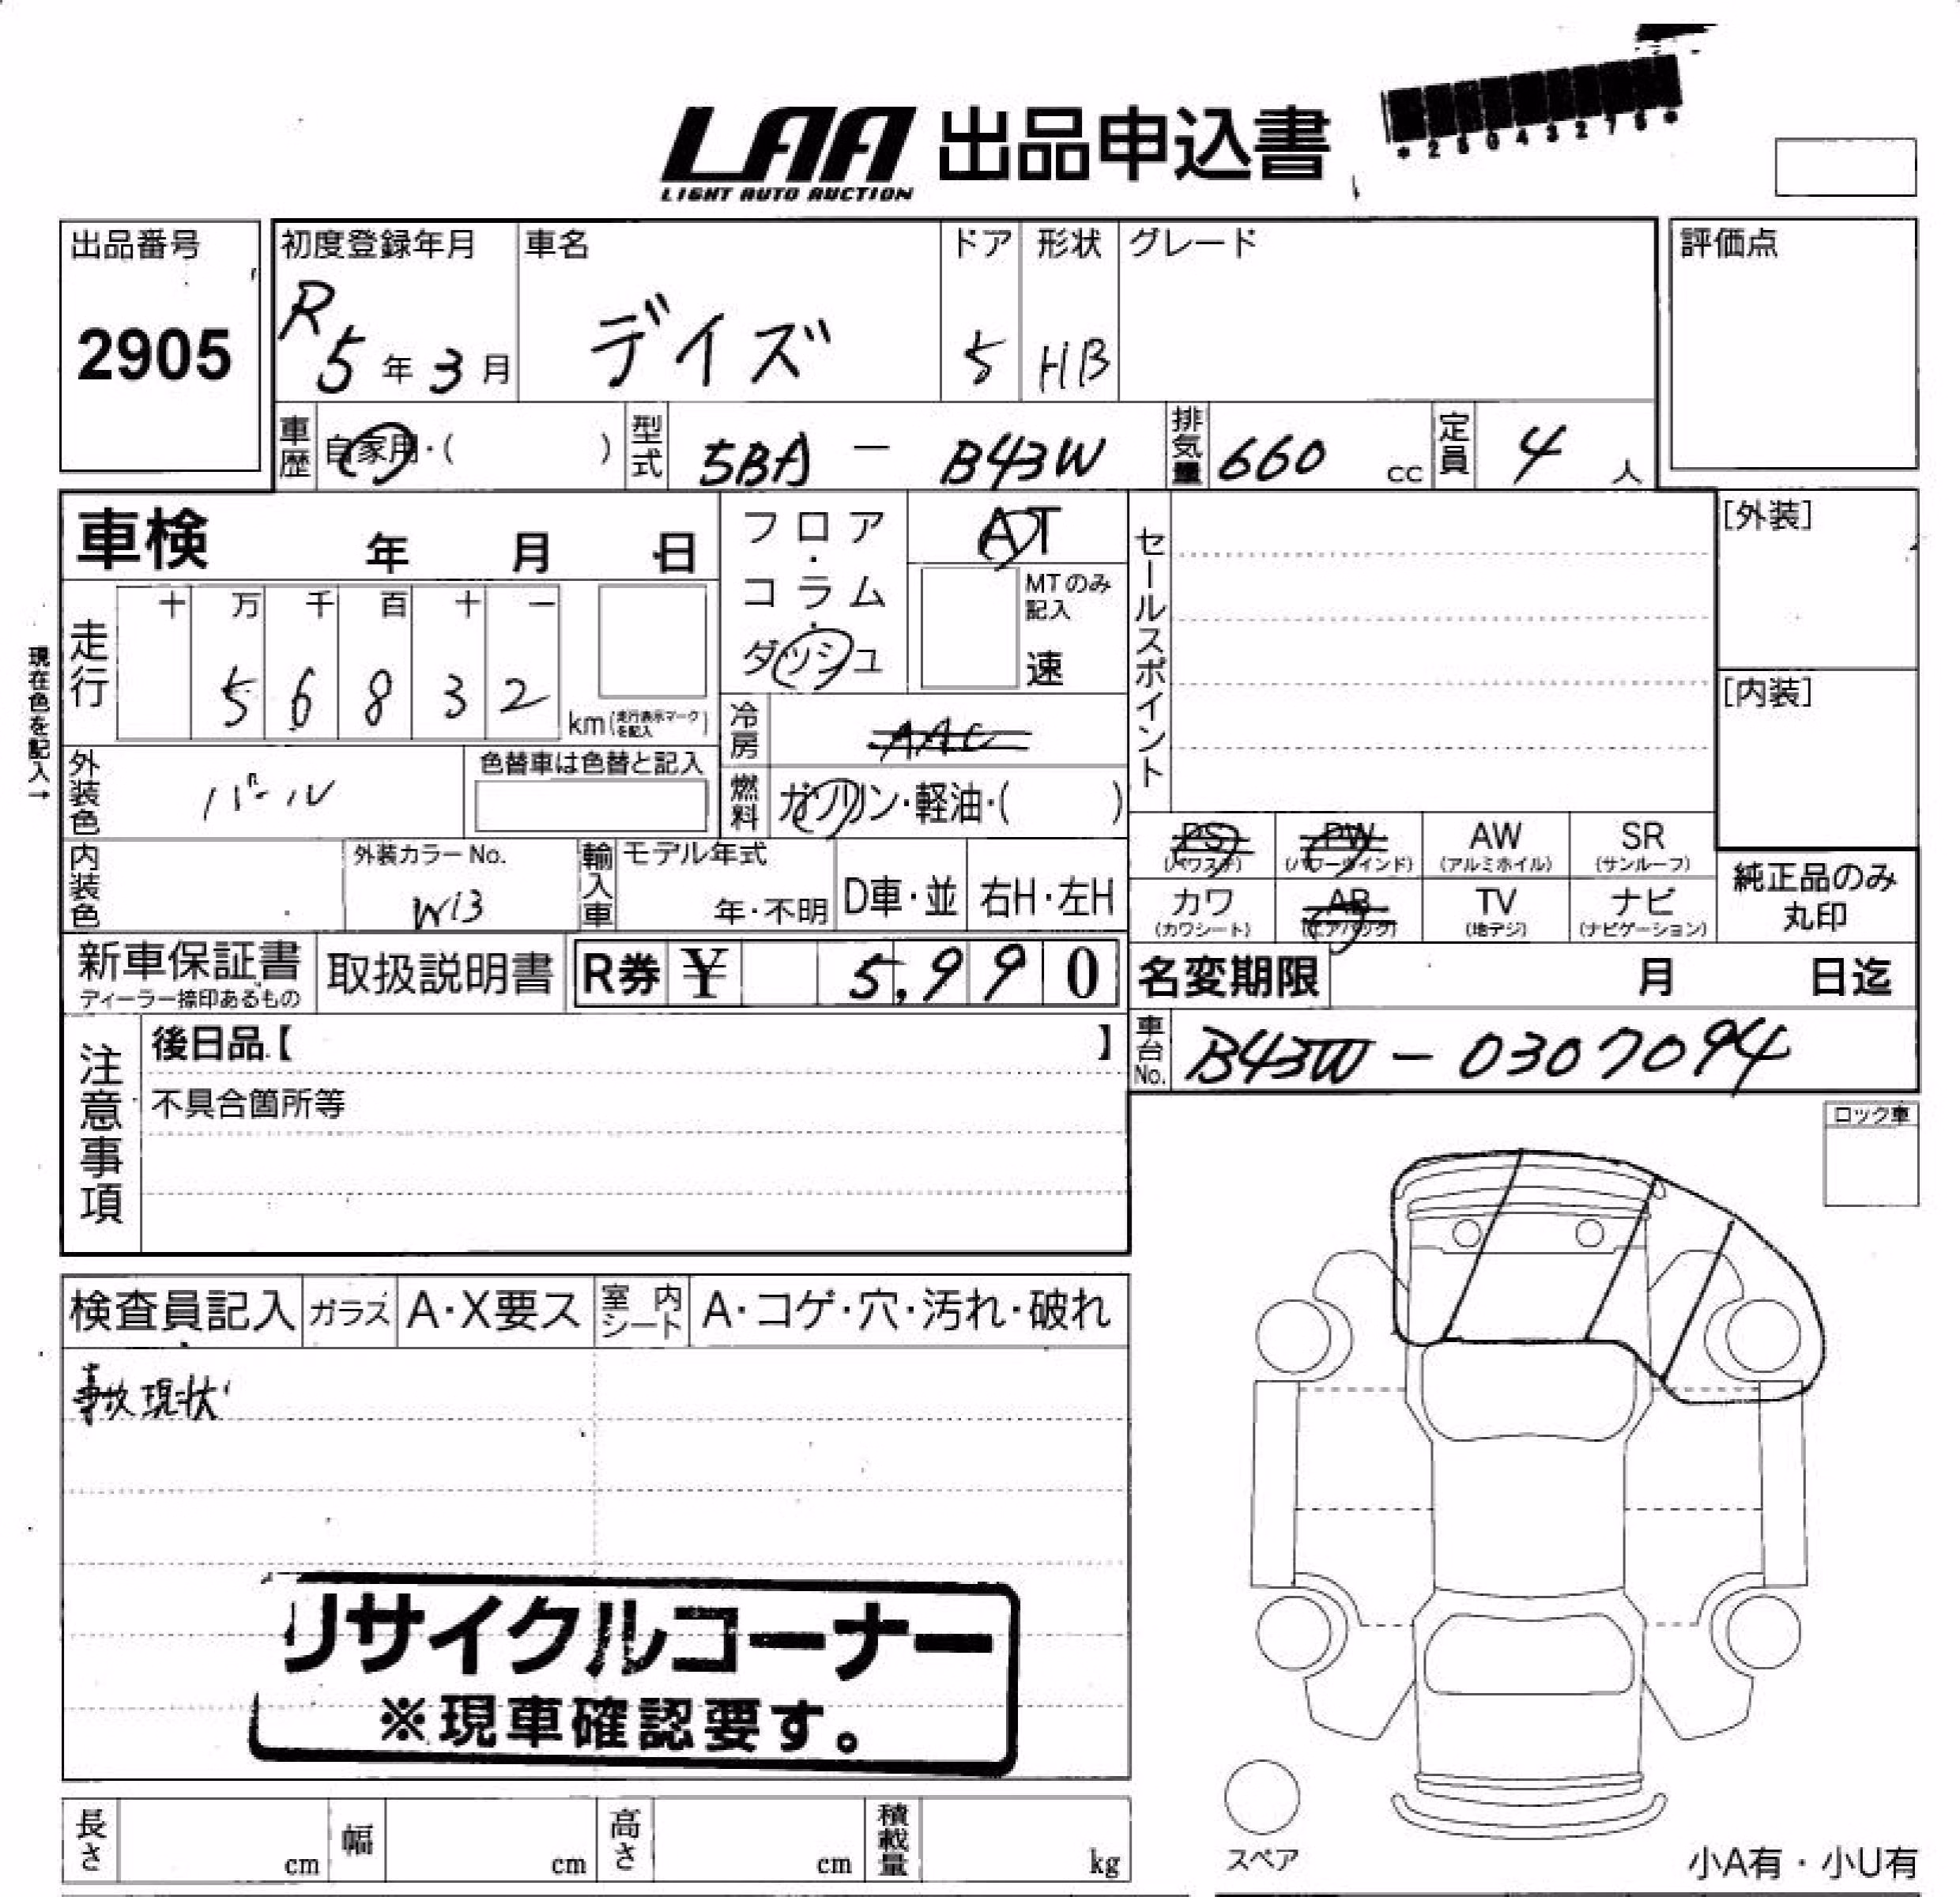 LAA 出品申込書
LIGHT AUTO AUCTION
出品番号
2905
初度登録年月
R
5年3月
車名
デイズ
ドア
5
形状
HB
グレード
評価点
車歴
自家用・( )
型式
5BA - B43W
排気量
660 cc
定員
4 人
車検 年 月 日
走行
十 万 千 百 十 一
5 6 8 3 2
km(走行表示マークを記入)
フロア・コラム・ダッシュ
AT
MTのみ記入
速
冷房
AAC
燃料
ガソリン・軽油・( )
セールスポイント
[外装]
[内装]
現在色を記入→
外装色
パール
色替車は色替と記入
内装色
外装カラーNo.
W13
輸入車
モデル年式
年・不明
D車・並
右H・左H
PS
(パワステ)
PW
(パワーウインド)
AW
(アルミホイル)
SR
(サンルーフ)
カワ
(カワシート)
AB
(エアバック)
TV
(地デジ)
ナビ
(ナビゲーション)
純正品のみ
丸印
新車保証書
ディーラー捺印あるもの
取扱説明書
R券 ¥ 5,990
名変期限 月 日迄
注意事項
後日品【 】
不具合箇所等
車台No.
B43W-0307094
ロック車
検査員記入
ガラス
A・X要ス
室内シート
A・コゲ・穴・汚れ・破れ
事故現状
リサイクルコーナー
※現車確認要す。
長さ cm
幅 cm
高さ cm
積載量 kg
スペア
小A有・小U有